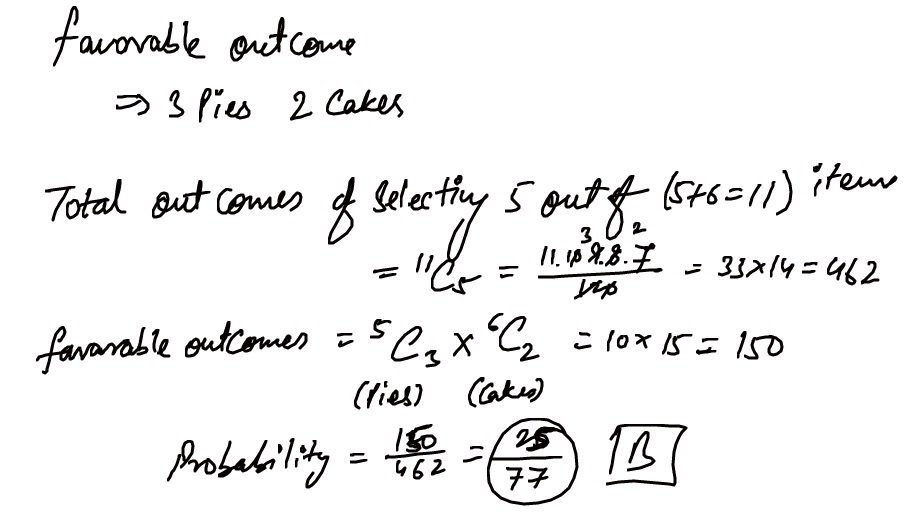 favorable outcome
⇒ 3 Pies 2 Cakes
Total outcomes of selecting 5 out of (5+6=11) items
= ¹¹C₅ = 11.10.9.8.7 / 120 = 33×14 = 462
3 2
favorable outcomes = ⁵C₃ × ⁶C₂ = 10×15 = 150
(Pies) (Cakes)
Probability = 150/462 = 25/77 B